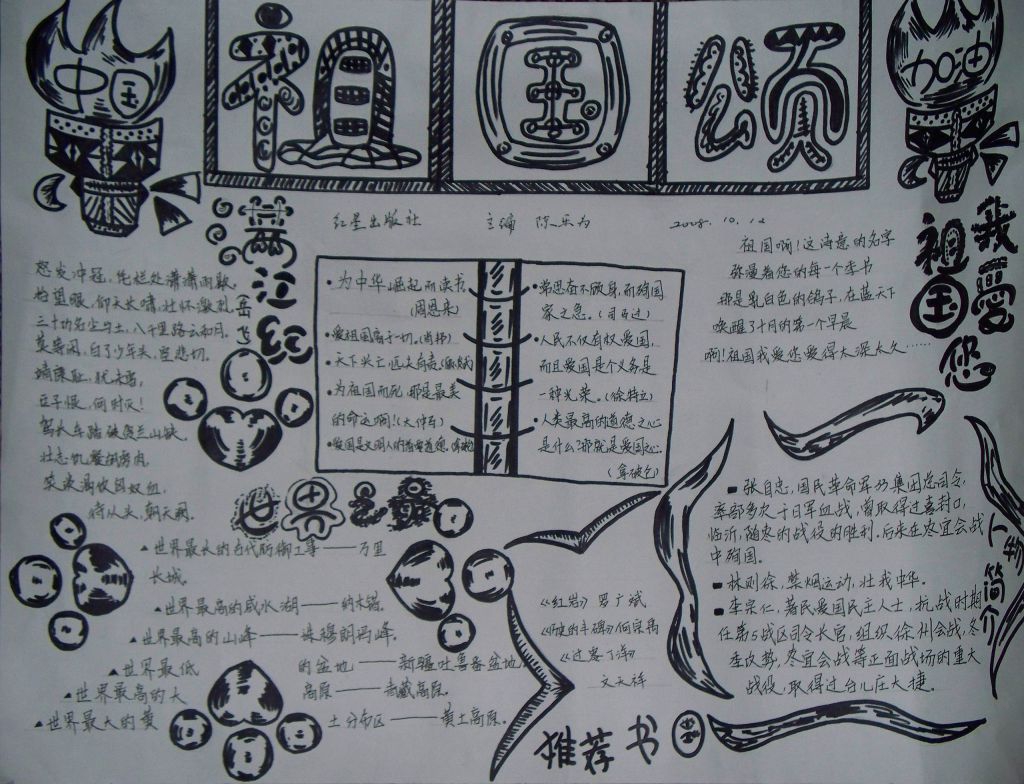 中国
祖国颂
加油
红星出版社 主编 陈乐为 2008.10.12
满江红
岳飞
怒发冲冠,凭栏处潇潇雨歇,
抬望眼,仰天长啸,壮怀激烈,
三十功名尘与土,八千里路云和月,
莫等闲,白了少年头,空悲切.
靖康耻,犹未雪,
臣子恨,何时灭!
驾长车踏破贺兰山缺,
壮志饥餐胡虏肉,
笑谈渴饮匈奴血,
待从头,朝天阙.
•为中华崛起而读书.
(周恩来)
•爱祖国高于一切.(肖邦)
•天下兴亡,匹夫有责.
•为祖国而死,那是最美
的命运啊!(大仲马)
•爱国是文明人的首要道德.
•常思奋不顾身,而殉国
家之急.(司马迁)
•人民不仅有权爱国,
而且爱国是个义务是
一种光荣。(徐特立)
•人类最高的道德之心
是什么?那就是爱国心.
(拿破仑)
祖国啊!这满意的名字
弥漫着您的每一个季书
那是乳白色的鸽子,在蓝天下
唤醒了十月的第一个早晨
啊!祖国我爱您爱得太深太久……
我爱您
祖国
世界之最
▲世界最长的古代防御工事——万里
长城.
▲世界最高的咸水湖——纳木错.
▲世界最高的山峰——珠穆朗玛峰.
▲世界最低的盆地——新疆吐鲁番盆地
▲世界最高的大高原——青藏高原.
▲世界最大的黄土分布区——黄土高原.
《红岩》罗广斌
《历史的丰碑》何宗禹
《过零丁洋》
文天祥
推荐书
人物简介
张自忠,国民革命军33集团总司令,
率部多次于日军血战,曾取得过喜封口,
临沂,随枣的战役的胜利.后来在枣宜会战
中殉国.
林则徐,禁烟运动,壮我中华.
李宗仁,著民爱国民主人士,抗战时期
任第5战区司令长官,组织徐州会战,冬
季攻势,枣宜会战等正面战场的重大
战役,取得过台儿庄大捷.